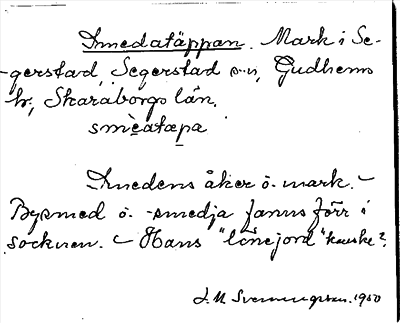 Smedatäppan. Mark i Se-
-gerstad, Segerstad s:n, Gudhems
hr, Skaraborgs län.
smèatæpa
Smedens åker ö. mark. –
Bysmed ö. -smedja fanns förr i
socknen. – Hans "lönejord" kanske?
J. M. Svenningson. 1950